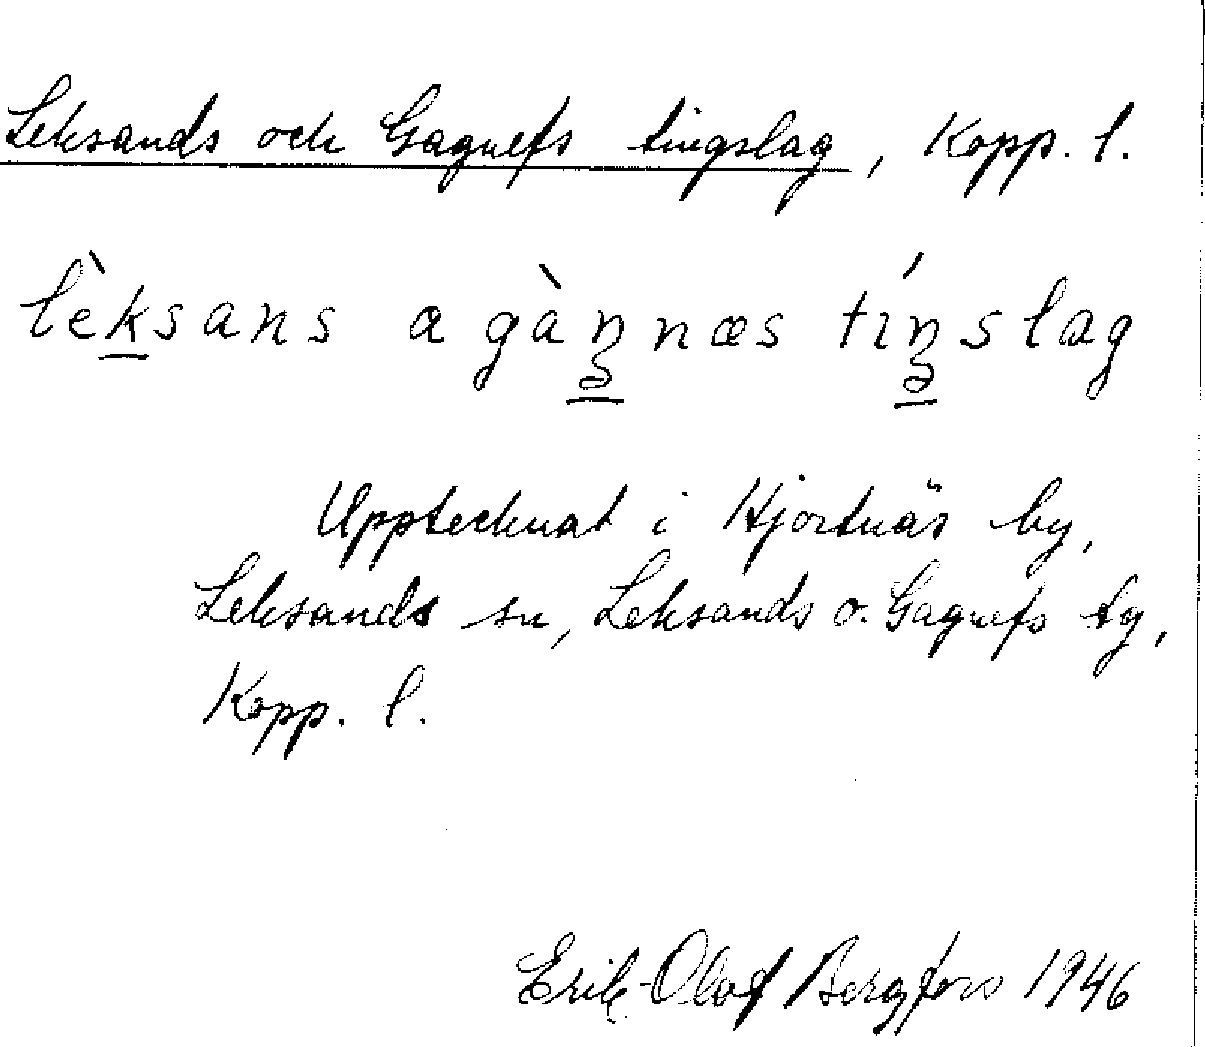 Leksands och Gagnefs tingslag, Kopp. l.
lèksans a gàŋnæs tíŋslag
Upptecknat i Hjortnäs by,
Leksands sn, Leksands o. Gagnefs tg,
Kopp. l.
Erik-Olof Bergfors 1946